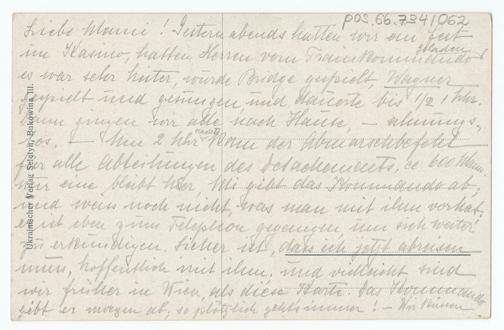 pos.66.734/062
Liebe Mami! Gestern abends hatten wir ein Fest
im Kasino, hatten Herren vom Trainkommando
geladen
es war sehr heiter, wurde Bridge gespielt, Wagner
gespielt und gesungen und dauerte bis 1/2 1 Uhr.
Dann gingen wir alle nach Hause, — ahnungs-
los. — Um 2 Uhr nachts kam der Abmarschbefehl
für alle Abteilungen des Detachements, ca 600 Mann,
nur eine bleibt hier. Wie gibt das Kommando ab,
und weiss noch nicht, was man mit ihm vorhat,
er ist eben zum Telephon gegangen um sich weiter
zu erkundigen. Sicher ist, dass ich jetzt abreisen
muss, hoffentlich mit ihm. und vielleicht sind
wir früher in Wien, als diese Karte. Das Kommando
gibt er morgen ab, so plötzlich geht's immer! — Wir können
Ukrainischer Verlag Seletyn-Bukowina III.